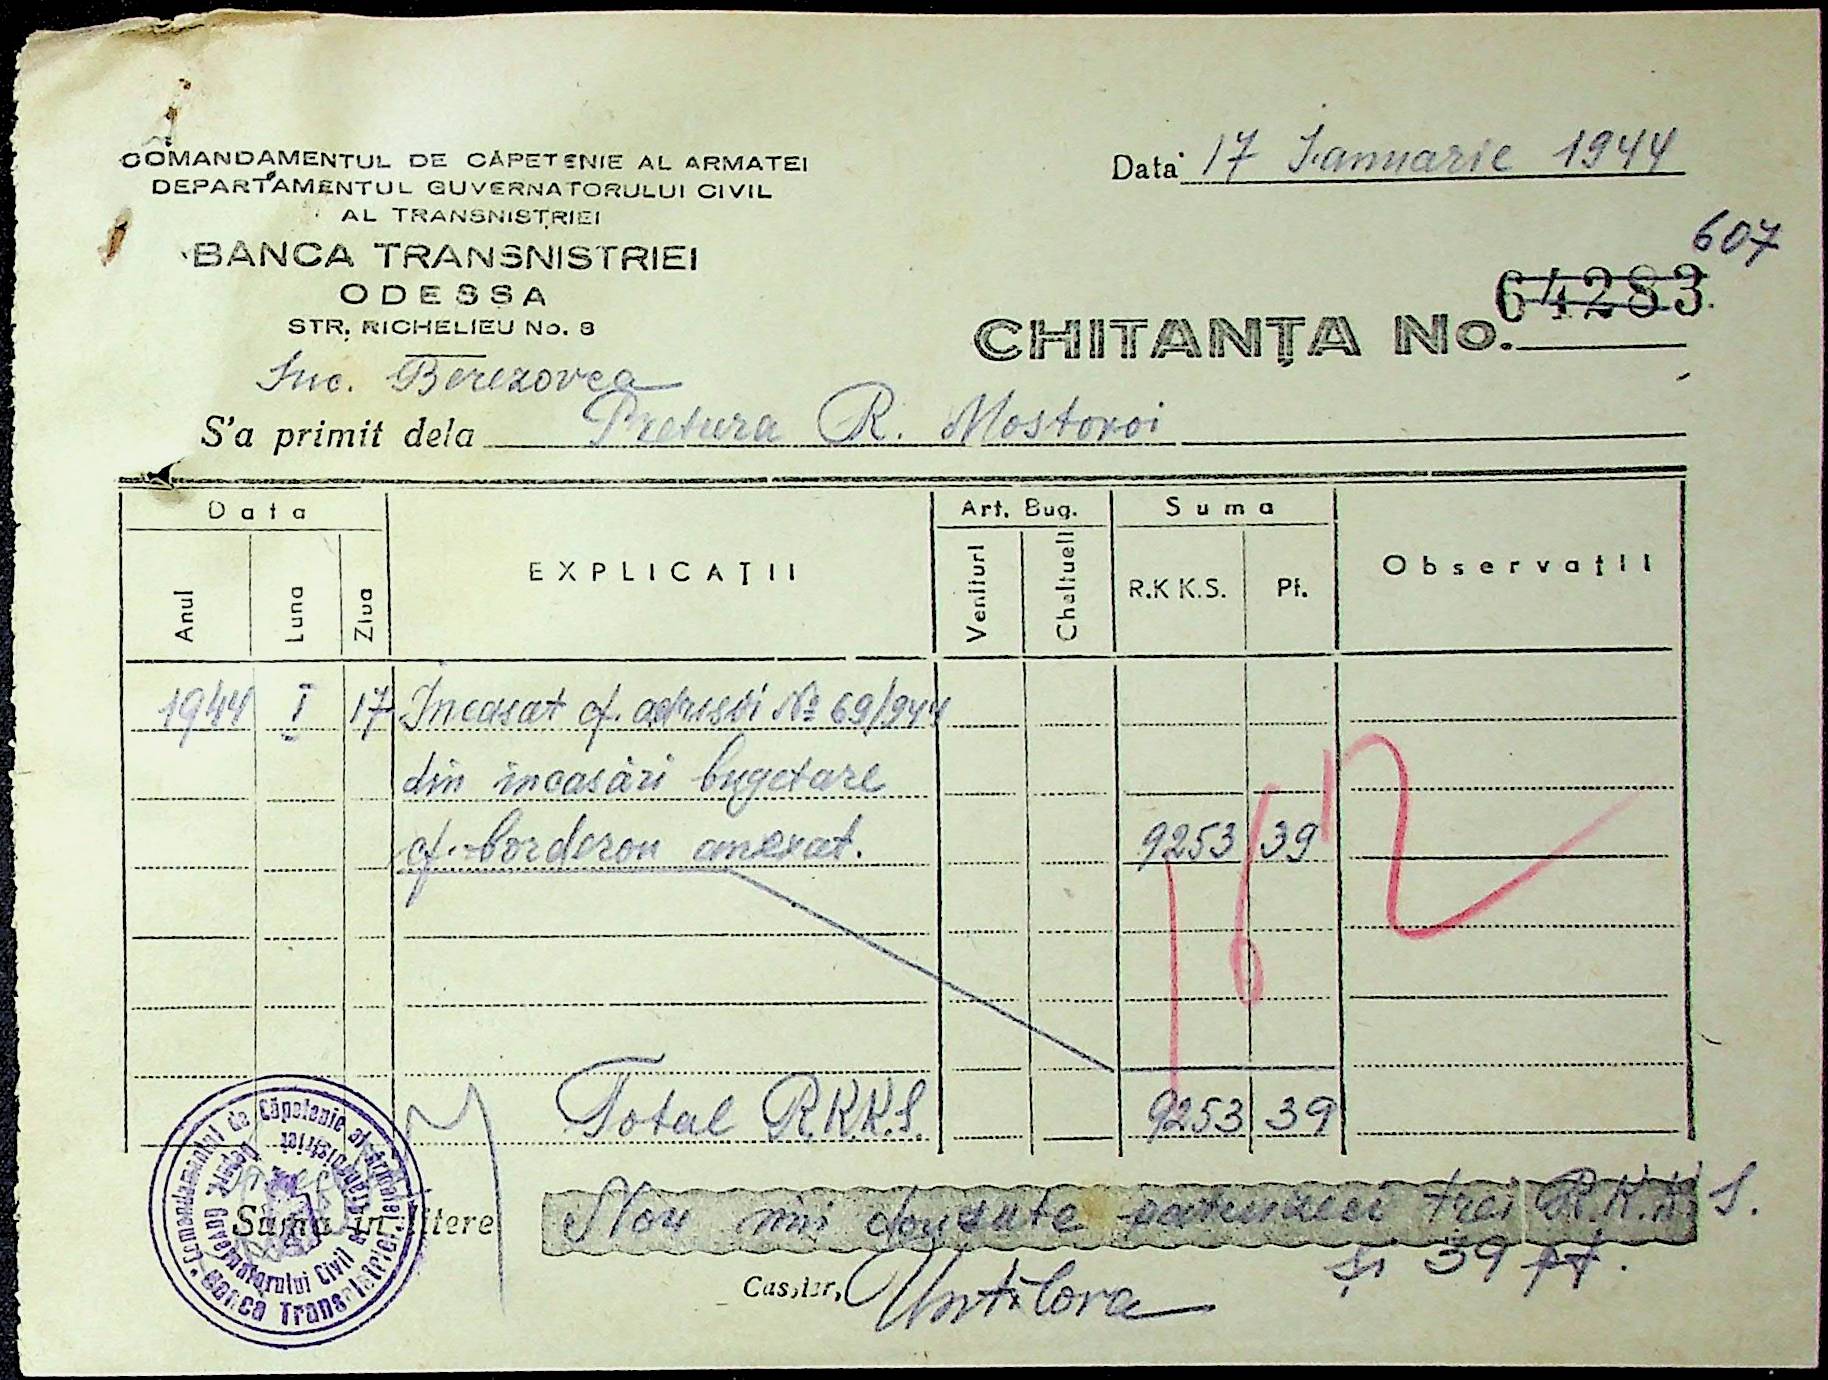 COMANDAMENTUL DE CĂPETENIE AL ARMATEI
DEPARTAMENTUL GUVERNATORULUI CIVIL
AL TRANSNISTRIEI
BANCA TRANSNISTRIEI
ODESSA
STR. RICHELIEU No. 8
Suc. Berezovca
Data 17 Ianuarie 1944
607
CHITANȚA No. 64283
S'a primit dela Pretura R. Mostovoi
Data
Art. Bug.
Suma
Anul
Luna
Ziua
EXPLICAȚII
Venituri
Cheltueli
R.K K.S.
Pf.
Observații
1944 I 17 Incasat cf. adresei № 69/944
din incasări bugetare
cf. borderou anexat. 9253 39
162
Total R.K.K.S. 9253 39
Suma in litere Nou mii douăsute patruzeci trei R.K.K.S.
și 39 pf.
Casier,
Comandamentul de Căpetenie al Armatei
Depart. Guvernatorului Civil al Transnistriei
Banca Transnistriei